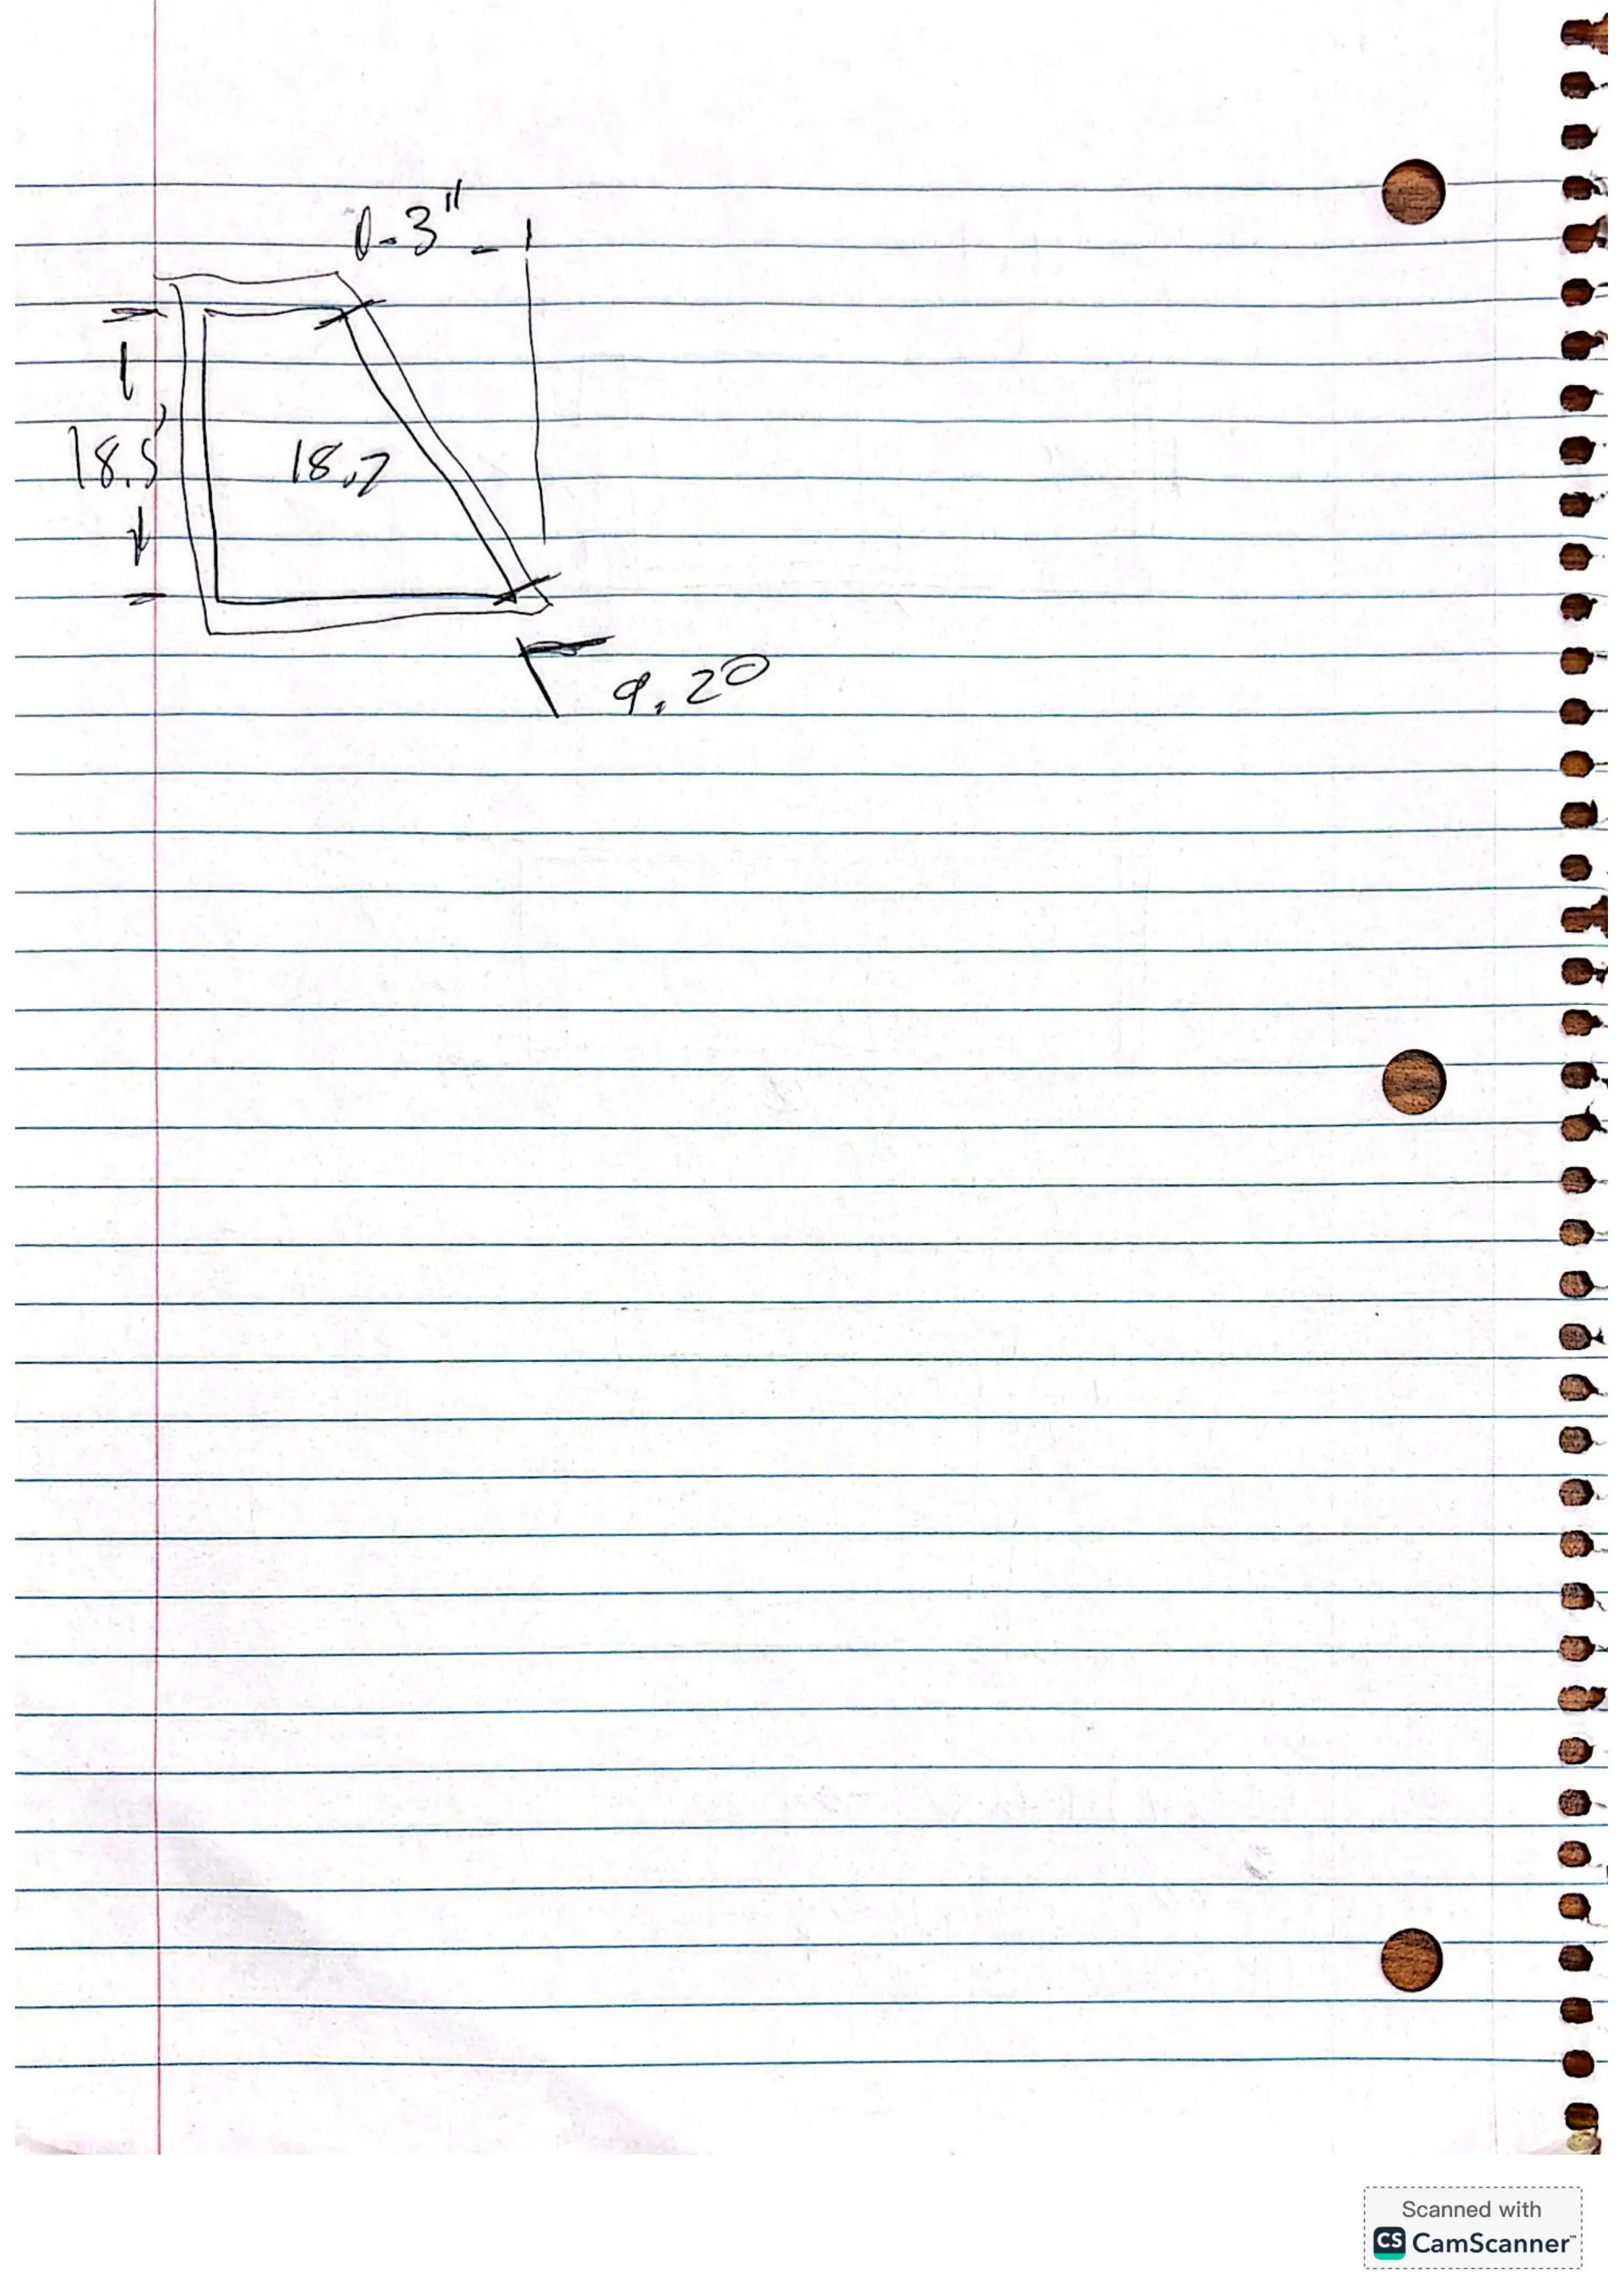 0-3"
18.5'
18.2
9.20
Scanned with
CS CamScanner™